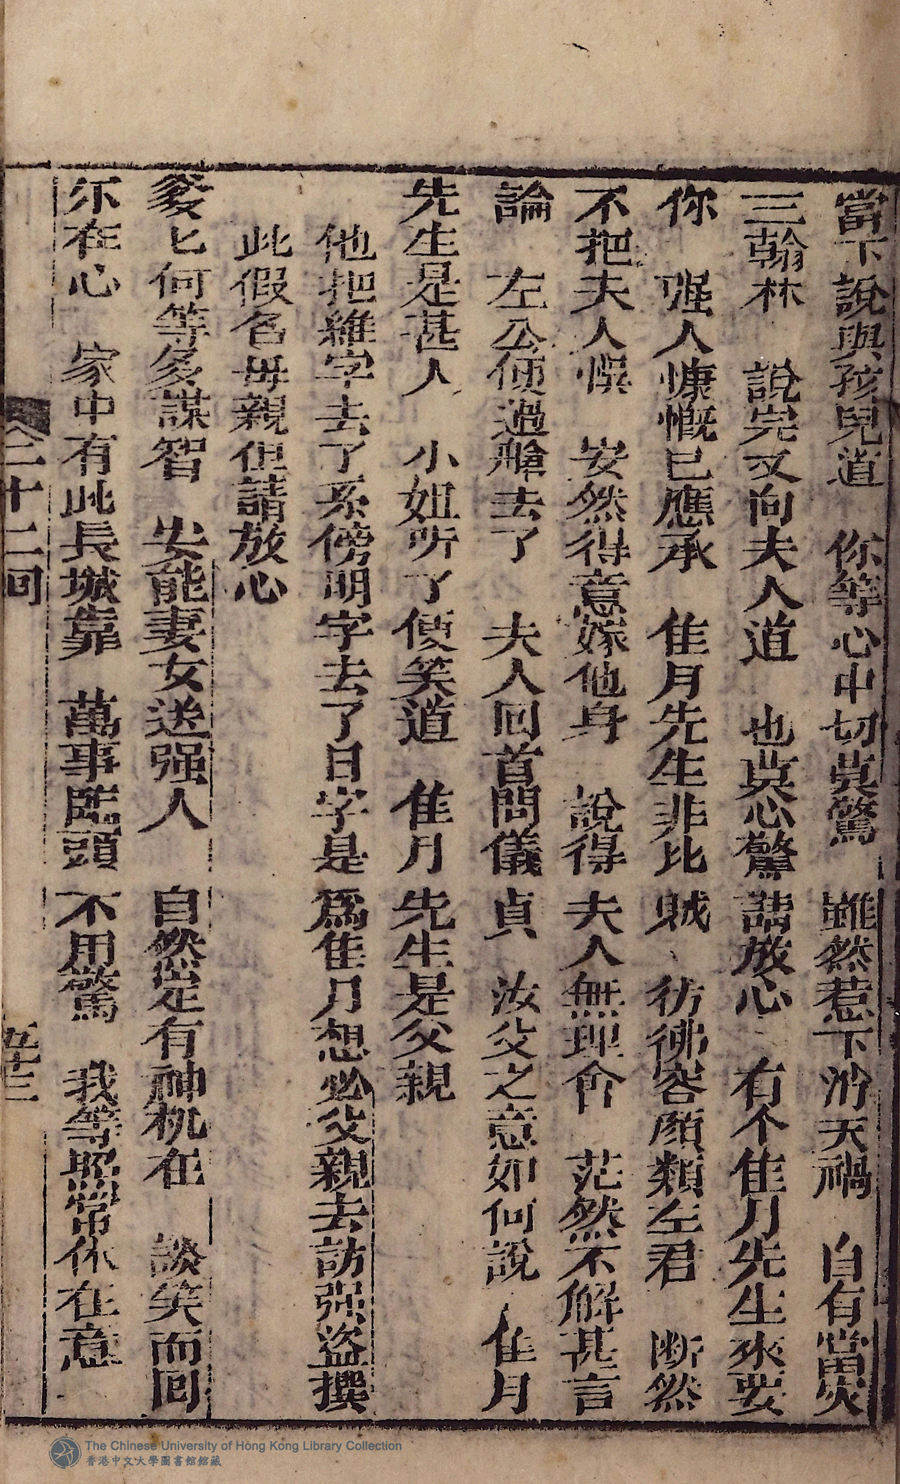 當下說與孩兒道　你等心中切莫驚　雖然惹下滔天禍　自有當災
三翰林　說完又向夫人道　也莫心驚請放心　有个隹月先生來娶
你　强人慷慨已應承　隹月先生非比賊　彷彿容顔類左君　断然
不把夫人悞　安然得意嫁他身　說得夫人無理會　茫然不解甚言
論　左公便過艙去了　夫人回首問儀貞　汝父之意如何說　隹月
先生是甚人　小姐听了便笑道　隹月先生是父親
他把維字去了系傍明字去了日字是爲隹月想必父親去訪强盜撰
此假名母親但請放心
爹匕何等多謀智　安能妻女送强人　自然定有神机在　談笑而囘
不在心　家中有此長城靠　萬事臨頭不用驚　我等照常休在意
二十二囘
五十三
The Chinese University of Hong Kong Library Collection
香港中文大學圖書館館藏